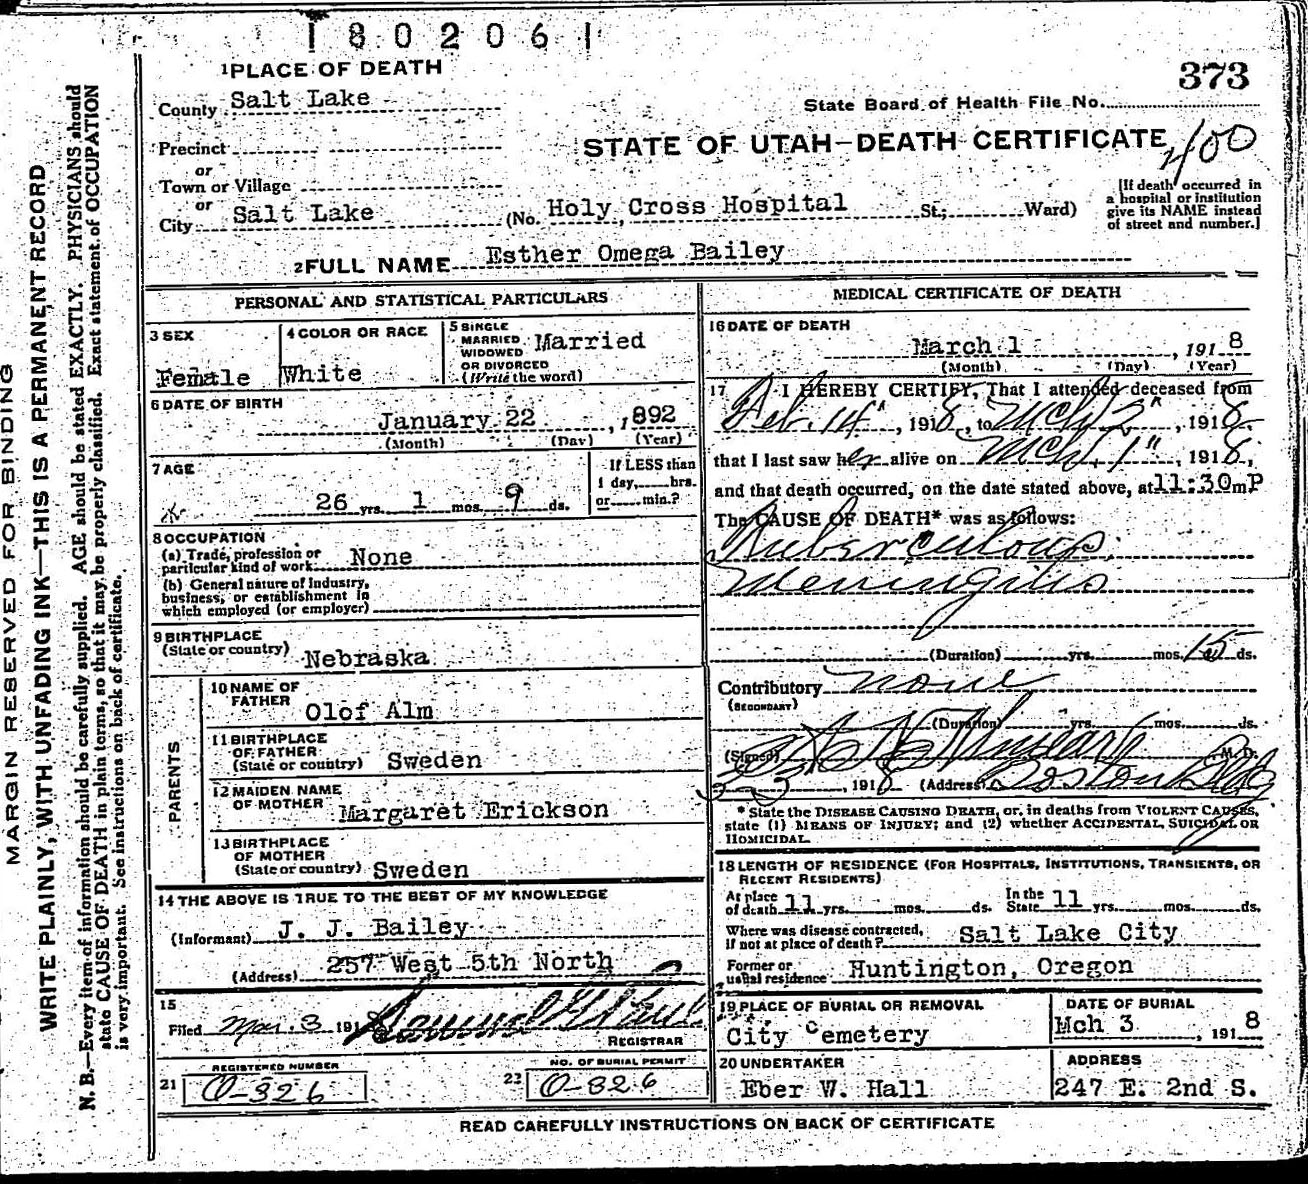 180206
1 PLACE OF DEATH
County Salt Lake
Precinct
or
Town or Village
or
City Salt Lake
(No. Holy Cross Hospital St.; Ward)
373
State Board of Health File No.
STATE OF UTAH—DEATH CERTIFICATE
400
[If death occurred in
a hospital or institution
give its NAME instead
of street and number.]
2 FULL NAME Esther Omega Bailey
PERSONAL AND STATISTICAL PARTICULARS
3 SEX
Female
4 COLOR OR RACE
White
5 SINGLE
MARRIED
WIDOWED
OR DIVORCED
(Write the word)
Married
6 DATE OF BIRTH
January 22, 1892
(Month) (Day) (Year)
7 AGE
26 yrs. 1 mos. 9 ds.
If LESS than
1 day, hrs.
or min.?
8 OCCUPATION
(a) Trade, profession or
particular kind of work None
(b) General nature of Industry,
business, or establishment in
which employed (or employer)
9 BIRTHPLACE
(State or country) Nebraska
PARENTS
10 NAME OF
FATHER
Olof Alm
11 BIRTHPLACE
OF FATHER
(State or country) Sweden
12 MAIDEN NAME
OF MOTHER Margaret Erickson
13 BIRTHPLACE
OF MOTHER
(State or country) Sweden
14 THE ABOVE IS TRUE TO THE BEST OF MY KNOWLEDGE
(Informant) J. J. Bailey
(Address) 257 West 5th North
15
Filed Mar. 3 191
REGISTRAR
REGISTERED NUMBER
21 O-326
NO. OF BURIAL PERMIT
22 O-326
MEDICAL CERTIFICATE OF DEATH
16 DATE OF DEATH
March 1, 1918
(Month) (Day) (Year)
17 I HEREBY CERTIFY, That I attended deceased from
Feb. 14", 1918, to Mch 2", 1918,
that I last saw her alive on Mch 1", 1918,
and that death occurred, on the date stated above, at 11:30 m P
The CAUSE OF DEATH* was as follows:
Tuberculous
Meningitis
(Duration) yrs. mos. 15 ds.
Contributory none
(SECONDARY)
(Duration) yrs. mos. ds.
(Signed) M. D.
3-3, 1918 (Address) Boston Bldg
* State the DISEASE CAUSING DEATH, or, in deaths from VIOLENT CAUSES,
state (1) MEANS OF INJURY; and (2) whether ACCIDENTAL, SUICIDAL OR
HOMICIDAL.
18 LENGTH OF RESIDENCE (FOR HOSPITALS, INSTITUTIONS, TRANSIENTS, OR
RECENT RESIDENTS)
At place
of death 11 yrs. mos. ds.
In the
State 11 yrs. mos. ds.
Where was disease contracted,
if not at place of death? Salt Lake City
Former or
usual residence Huntington, Oregon
19 PLACE OF BURIAL OR REMOVAL
City Cemetery
DATE OF BURIAL
Mch 3, 1918
20 UNDERTAKER
Eber W. Hall
ADDRESS
247 E. 2nd S.
READ CAREFULLY INSTRUCTIONS ON BACK OF CERTIFICATE
MARGIN RESERVED FOR BINDING
WRITE PLAINLY, WITH UNFADING INK—THIS IS A PERMANENT RECORD
N. B.—Every item of information should be carefully supplied. AGE should be stated EXACTLY. PHYSICIANS should
state CAUSE OF DEATH in plain terms, so that it may be properly classified. Exact statement of OCCUPATION
is very important. See instructions on back of certificate.